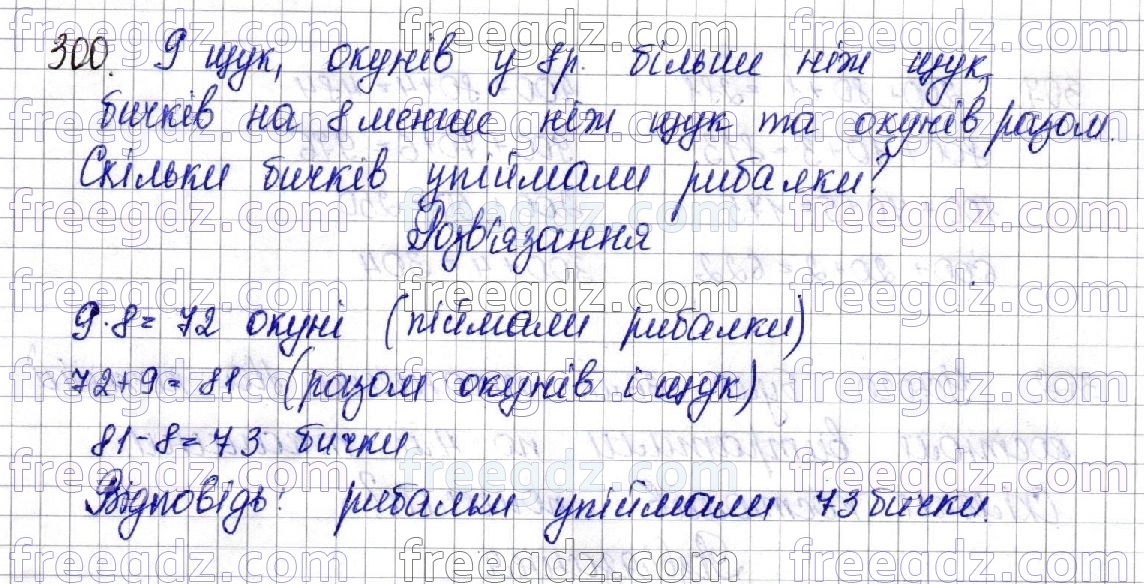 300. 9 щук, окунів у 8р. більше ніж щук,
бичків на 8 менше ніж щук та окунів разом.
Скільки бичків упіймали рибалки?
Розв'язання
9·8=72 окуні (піймали рибалки)
72+9=81 (разом окунів і щук)
81-8=73 бички
Відповідь: рибалки упіймали 73 бички.
freegdz.com